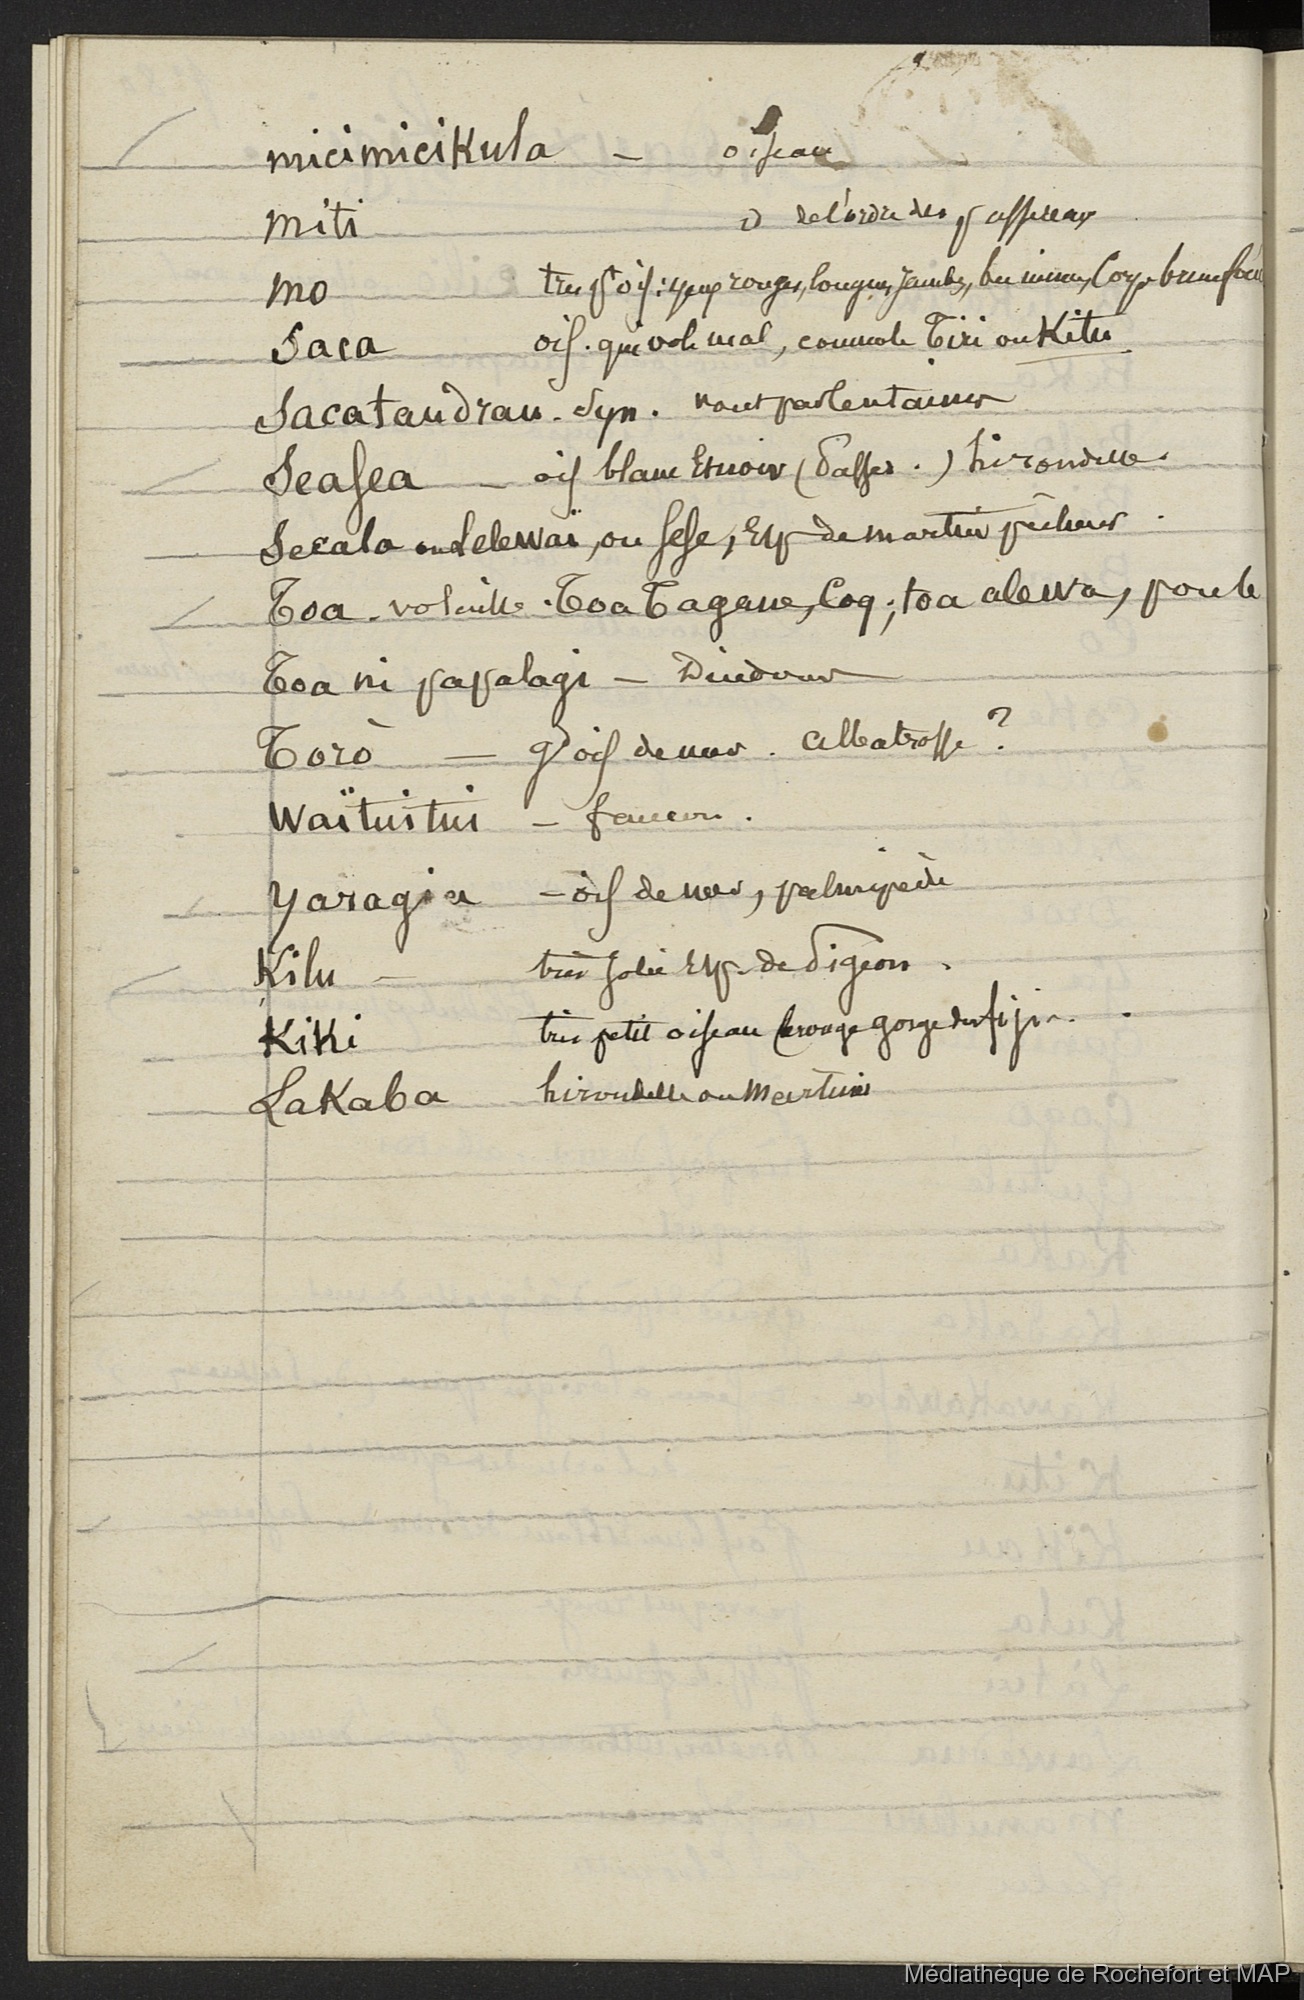 micimicikula – oiseau
miti d de l'ordre des passereaux
mo très pt ois: yeux rouges, longues jambes, bec mince, Corps brun foncé
Saca ois. qui vole mal, comme le Tiri ou Kitu
Sacataudrau. Syn.
Seasea – ois blanc et noir (Passer.) hirondelle.
Secala ou Lelewaï, ou Sese, Esp de martin pêcheur.
Toa. volaille. Toa Tagane, Coq; toa alewa, poule
Toa ni papalagi – Dindon
Torò – gd ois de mer. Albatrosse?
Waïtuitui – faucon.
Yaragia – ois de mer, palmipède
Kilu – très jolie Esp. de Pigeon.
KiKi très petit oiseau le rouge gorge des fiji.
LaKaba hirondelle ou Martinet
Médiathèque de Rochefort et MAP